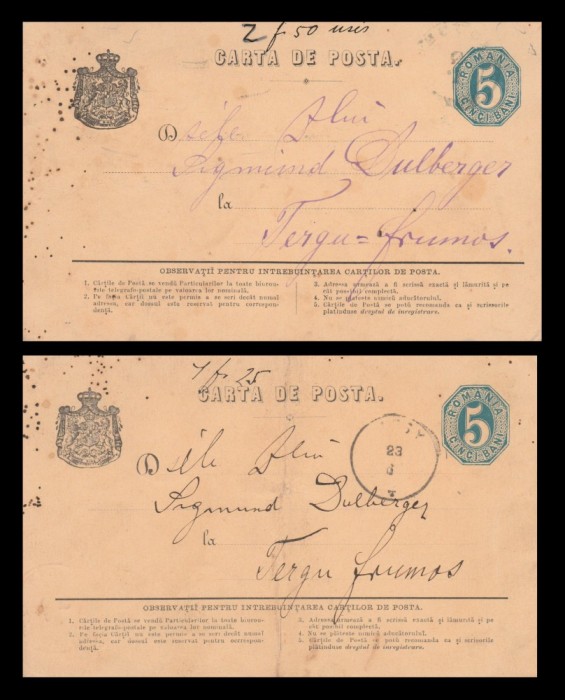 2 f 50 uses
CARTA DE POSTA.
ROMANIA
5
CINCI BANI
D sile Dlui
Sigmund Dulberger
la
Tergu=frumos.
OBSERVAȚII PENTRU INTREBUINȚAREA CARȚILOR DE POSTA.
1. Cărțile de Postă se vendă Particularilor la tóte biurou-
rile telegrafo-postale pe valoarea lor nominală.
2. Pe fașia Cărții nu este permis a se scri decât numai
adresa, ear dosul este reservat pentru corespon-
dență.
3. Adresa urmează a fi scrisă exactă și lămurită și pe
cât posibil complectă.
4. Nu se plătește nimică aducĕtorului.
5. Cărțile de Postă se potă recomanda ca și scrisorile
plătinduse dreptul de inregistrare.
1 f 25
CARTA DE POSTA.
ROMANIA
5
CINCI BANI
23
6
D sile Dlui
Sigmund Dulberger
la
Tergu frumos
OBSERVAȚII PENTRU INTREBUINȚAREA CARȚILOR DE POSTA.
1. Cărțile de Postă se vendă Particularilor la tóte biurou-
rile telegrafo-postale pe valoarea lor nominală.
2. Pe fașia Cărții nu este permis a se scri decât numai
adresa, ear dosul este reservat pentru corespon-
dență.
3. Adresa urmează a fi scrisă exactă și lămurită și pe
cât posibil complectă.
4. Nu se plătește nimică aducĕtorului.
5. Cărțile de Postă se potă recomanda ca și scrisorile
plătinduse dreptul de inregistrare.